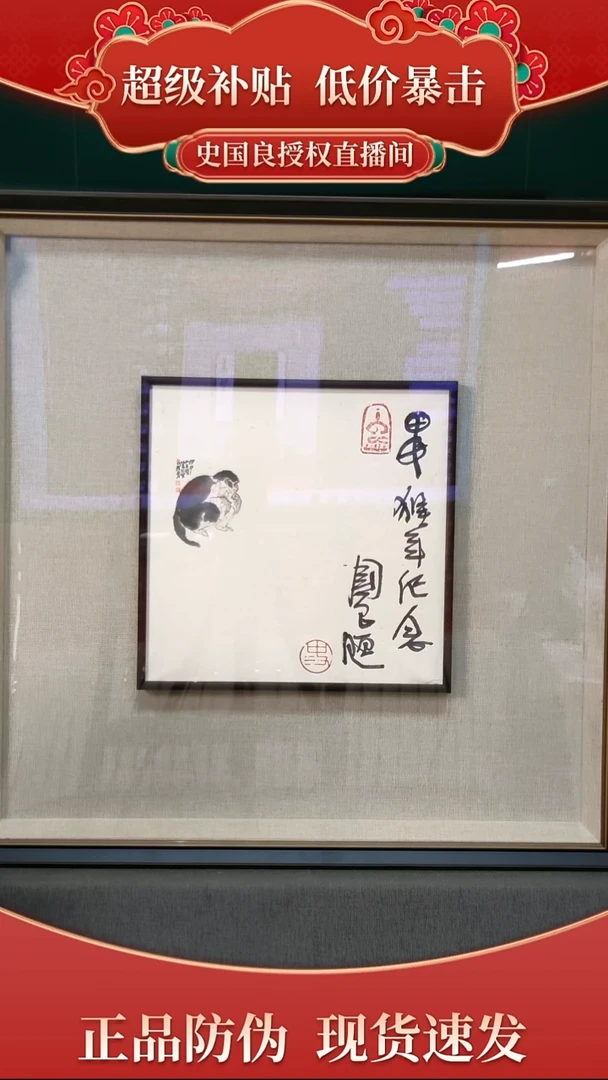 超级补贴 低价暴击
史国良授权直播间
申猴年纪念
国良题
正品防伪 现货速发